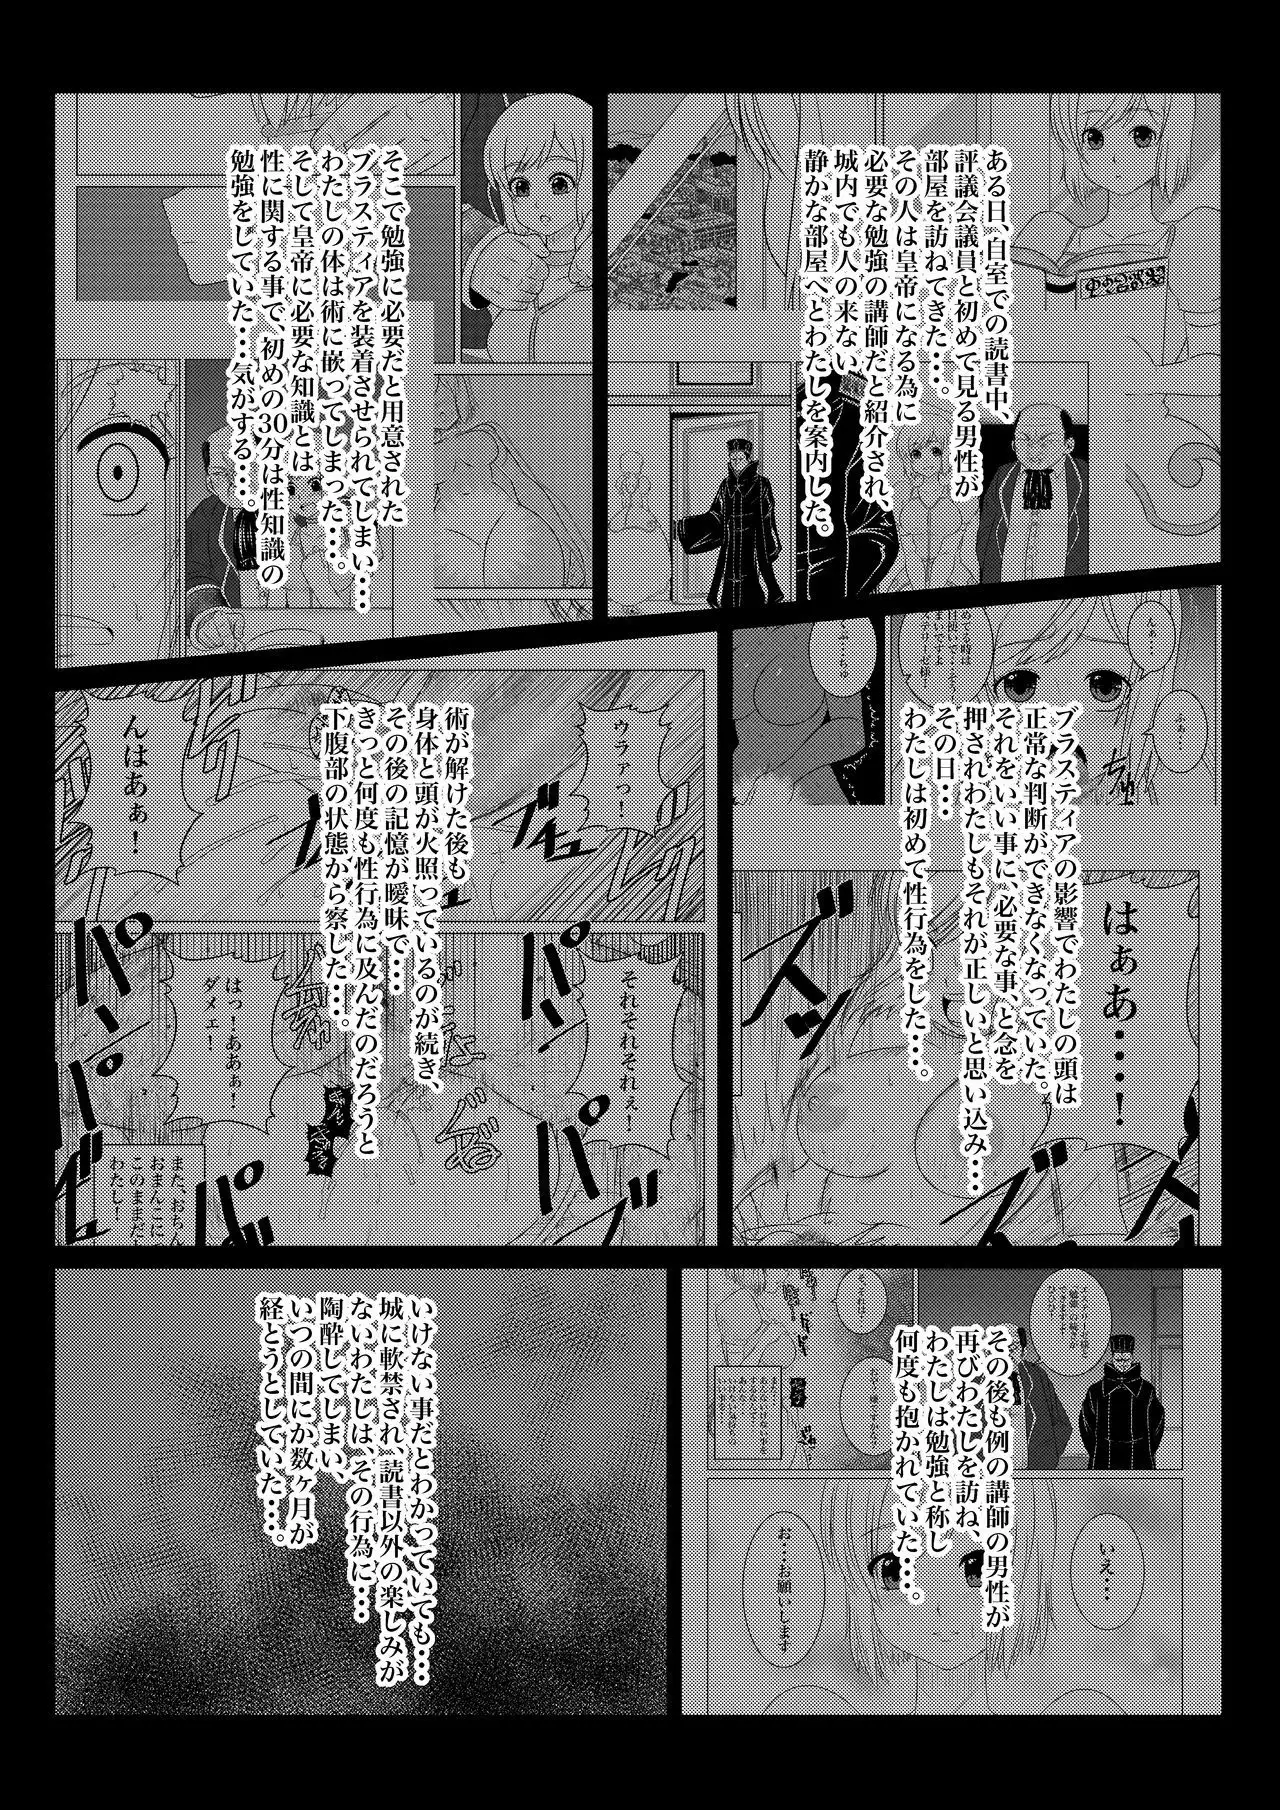 ある日、自室での読書中、
評議会議員と初めて見る男性が
部屋を訪ねてきた・・・。
その人は皇帝になる為に
必要な勉強の講師だと紹介され、
城内でも人の来ない
静かな部屋へとわたしを案内した。
そこで勉強に必要だと用意された
ブラスティアを装着させられてしまい・・・
わたしの体は術に嵌ってしまった・・・。
そして皇帝に必要な知識とは
性に関する事で、初めの30分は性知識の
勉強をしていた・・・気がする・・・。
んぁ・・・
ふぁ・・・
ブラスティアの影響でわたしの頭は
正常な判断ができなくなっていた。
それをいい事に、必要な事、と念を
押されわたしもそれが正しいと思い込み・・・
その日・・・
わたしは初めて性行為をした・・・。
はぁぁ・・・！
ウラァっ！
んはあぁ！
術が解けた後も
身体と頭が火照っているのが続き、
その後の記憶が曖昧で・・・
きっと何度も性行為に及んだのだろうと
下腹部の状態から察した・・・。
それそれそれぇ！
はっ！ああぁ！
ダメェ！
また、おちん
おまんこに
このままだ
わたし！
その後も例の講師の男性が
再びわたしを訪ね、
わたしは勉強と称し
何度も抱かれていた・・・。
いえ・・・
お・・お願いします
いけない事だとわかっていても・・・
城に軟禁され、読書以外の楽しみが
ないわたしは、その行為に・・・
陶酔してしまい、
いつの間にか数ヶ月が
経とうとしていた・・・。